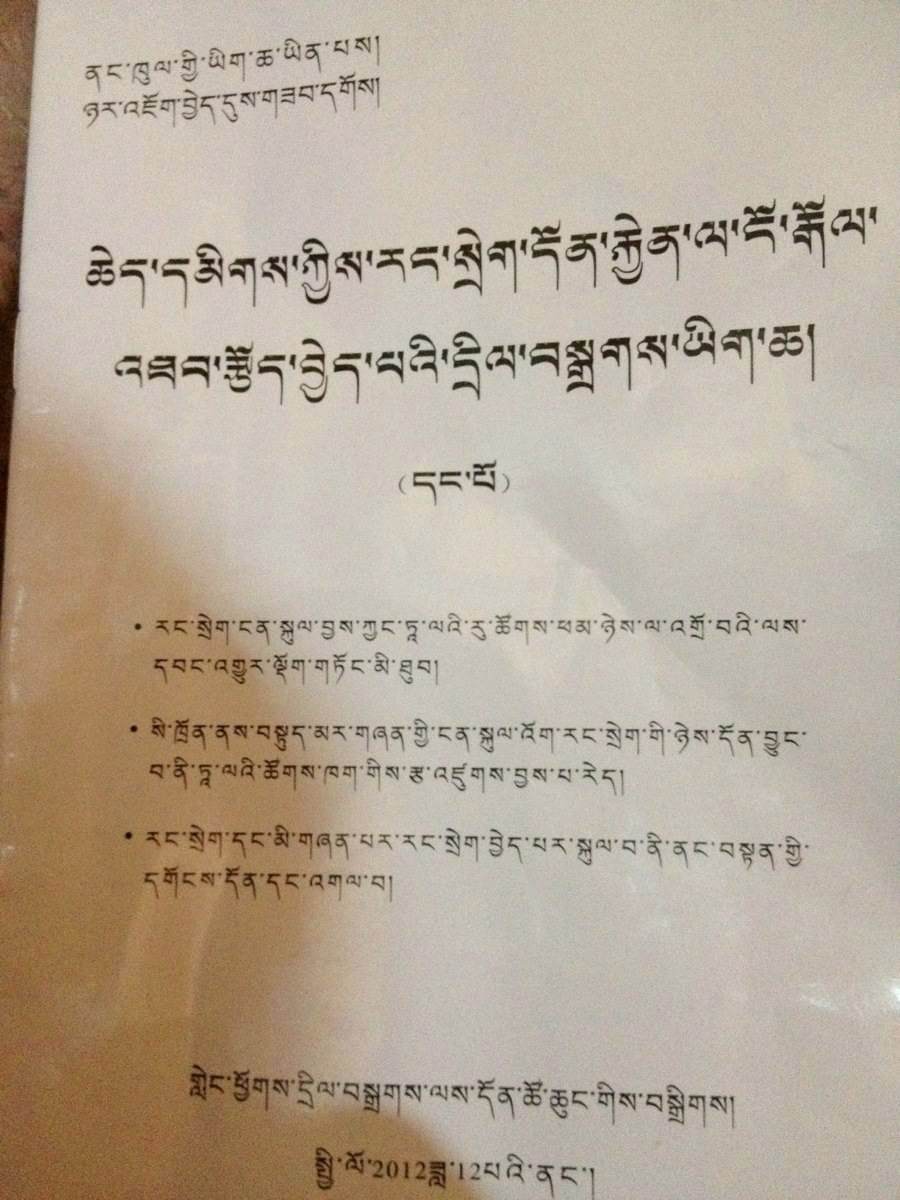 ནང་ཁུལ་གྱི་ཡིག་ཆ་ཡིན་པས།
ཉར་འཇོག་བྱེད་དུས་གཟབ་དགོས།
ཆེད་དམིགས་ཀྱིས་རང་སྲེག་དོན་རྐྱེན་ལ་ངོ་རྒོལ་
འཐབ་རྩོད་བྱེད་པའི་དྲིལ་བསྒྲགས་ཡིག་ཆ།
(དང་པོ)
• རང་སྲེག་ངན་སྐུལ་བྱས་ཀྱང་ཏཱ་ལའི་རུ་ཚོགས་ཕམ་ཉེས་ལ་འགྲོ་བའི་ལས་
དབང་འགྱུར་ལྡོག་གཏོང་མི་ཐུབ།
• སི་ཁྲོན་ནས་བསྟུད་མར་གཞན་གྱི་ངན་སྐུལ་འོག་རང་སྲེག་གི་ཉེས་དོན་བྱུང་
བ་ནི་ཏཱ་ལའི་ཚོགས་ཁག་གིས་རྩ་འཛུགས་བྱས་པ་རེད།
• རང་སྲེག་དང་མི་གཞན་པར་རང་སྲེག་བྱེད་པར་སྐུལ་བ་ནི་ནང་བསྟན་གྱི་
དགོངས་དོན་དང་འགལ་བ།
གླེང་ཕྱོགས་དྲིལ་བསྒྲགས་ལས་དོན་ཚོ་ཆུང་གིས་བསྒྲིགས།
སྤྱི་ལོ་2012ཟླ་12པའི་ནང་།